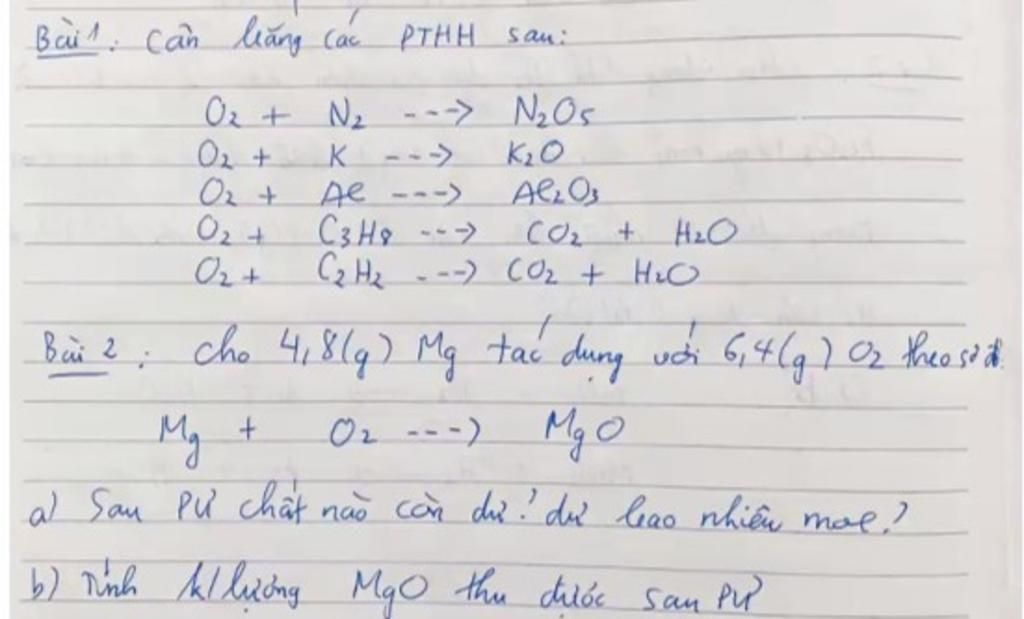 Bài 1: Cân bằng các PTHH sau:
O2 + N2 ---> N2O5
O2 + K ---> K2O
O2 + Al ---> Al2O3
O2 + C3H8 ---> CO2 + H2O
O2 + C2H2 ---> CO2 + H2O
Bài 2: Cho 4,8(g) Mg tác dụng với 6,4(g) O2 theo sơ đồ.
Mg + O2 ---> MgO
a) Sau PƯ chất nào còn dư? dư bao nhiêu mol?
b) Tính k/lượng MgO thu được sau PƯ